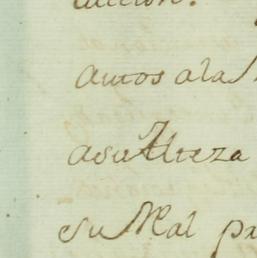 autos a la
a su Alteza
su Real pa